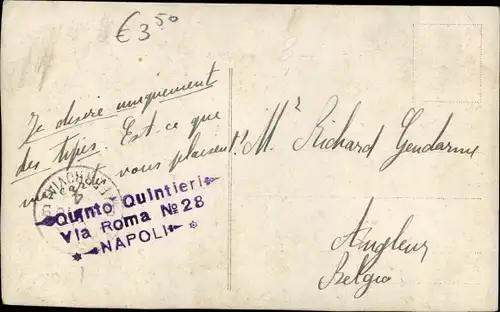 €3⁵⁰
Je désire uniquement
des types. Est ce que
vous plaisent?
Quinto Quintieri
Via Roma Nº 28
NAPOLI
Mʳ Richard Gendarme
Angleur
Belgio